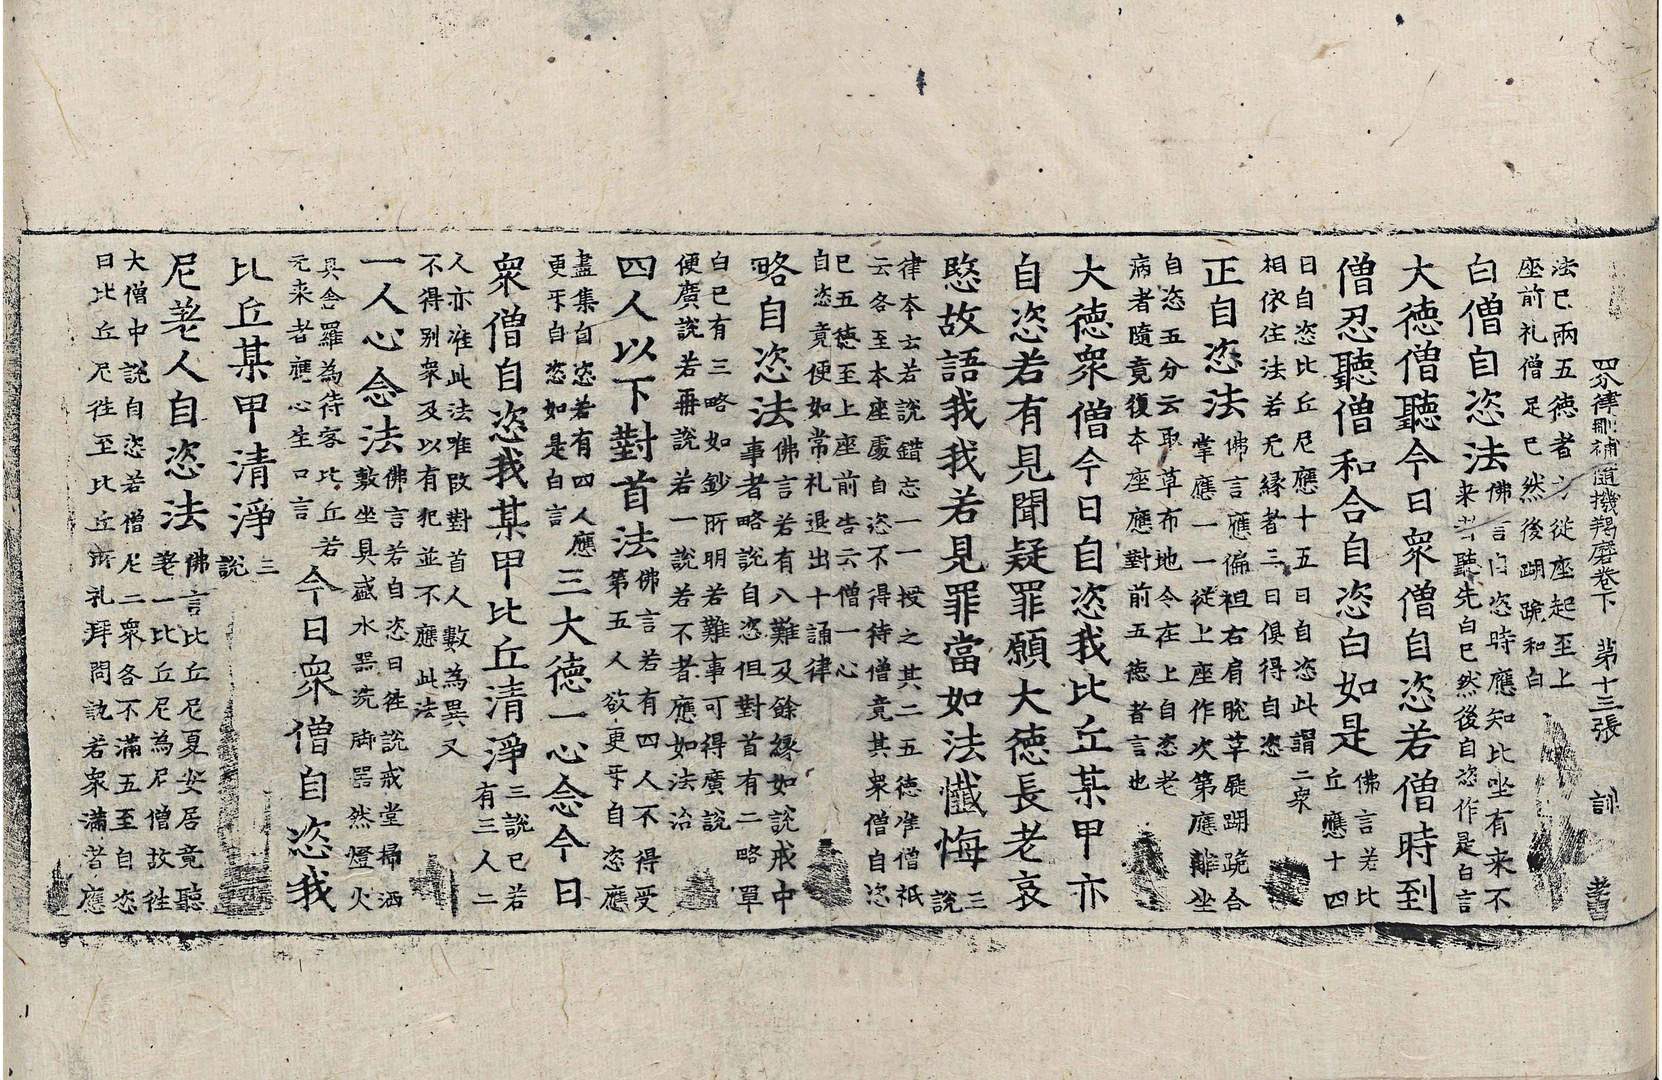 四分律刪補隨機羯磨卷下 第十三張 訓 老
法已兩五德者 從座起至上
座前礼僧足已然後踟跪和白
白僧自恣法佛言白恣時應知比坐有来不
来者聽先白已然後自恣作是白言
大德僧聽今日衆僧自恣若僧時到
僧忍聽僧和合自恣白如是佛言若比
丘應十四
日自恣比丘尼應十五日自恣此謂二衆
相依住法若无緣者三日俱得自恣
正自恣法佛言應偏袒右肩脫革屣踟跪合
掌應一一從上座作次第應離坐
自恣五分云取草布地令在上自恣老
病者隨竟復本座應對前五德者言也
大德衆僧今日自恣我比丘某甲亦
自恣若有見聞疑罪願大德長老哀
愍故語我我若見罪當如法懺悔三
說
律本云若說錯忘一一授之其二五德准僧祇
云各至本座處自恣不得待僧竟其衆僧自恣
已五德至上座前告云僧一心
自恣竟便如常礼退出十誦律
略自恣法佛言若有八難及餘緣如說戒中
事者略說自恣但對首有二略單
白已有三略如鈔所明若難事可得廣說
便廣說若再說若一說若不者應如法治
四人以下對首法佛言若有四人不得受
第五人欲更牙自恣應
盡集自恣若有四人應
更牙自恣如是白言三大德一心念今日
衆僧自恣我某甲比丘清淨三說已若
有三人二
人亦准此法唯改對首人數為異又
不得別衆及以有犯並不應此法
一人心念法佛言若自恣日往說戒堂掃洒
敷坐具盛水器洗脚器然燈火
具舍羅為待客比丘若
无来者應心生口言今日衆僧自恣我
比丘某甲清淨三
說
尼差人自恣法佛言比丘尼夏安居竟聽
差一比丘尼為尼僧故往
大僧中說自恣若僧尼二衆各不滿五至自恣
日比丘尼往至比丘所礼拜問訊若衆滿者應